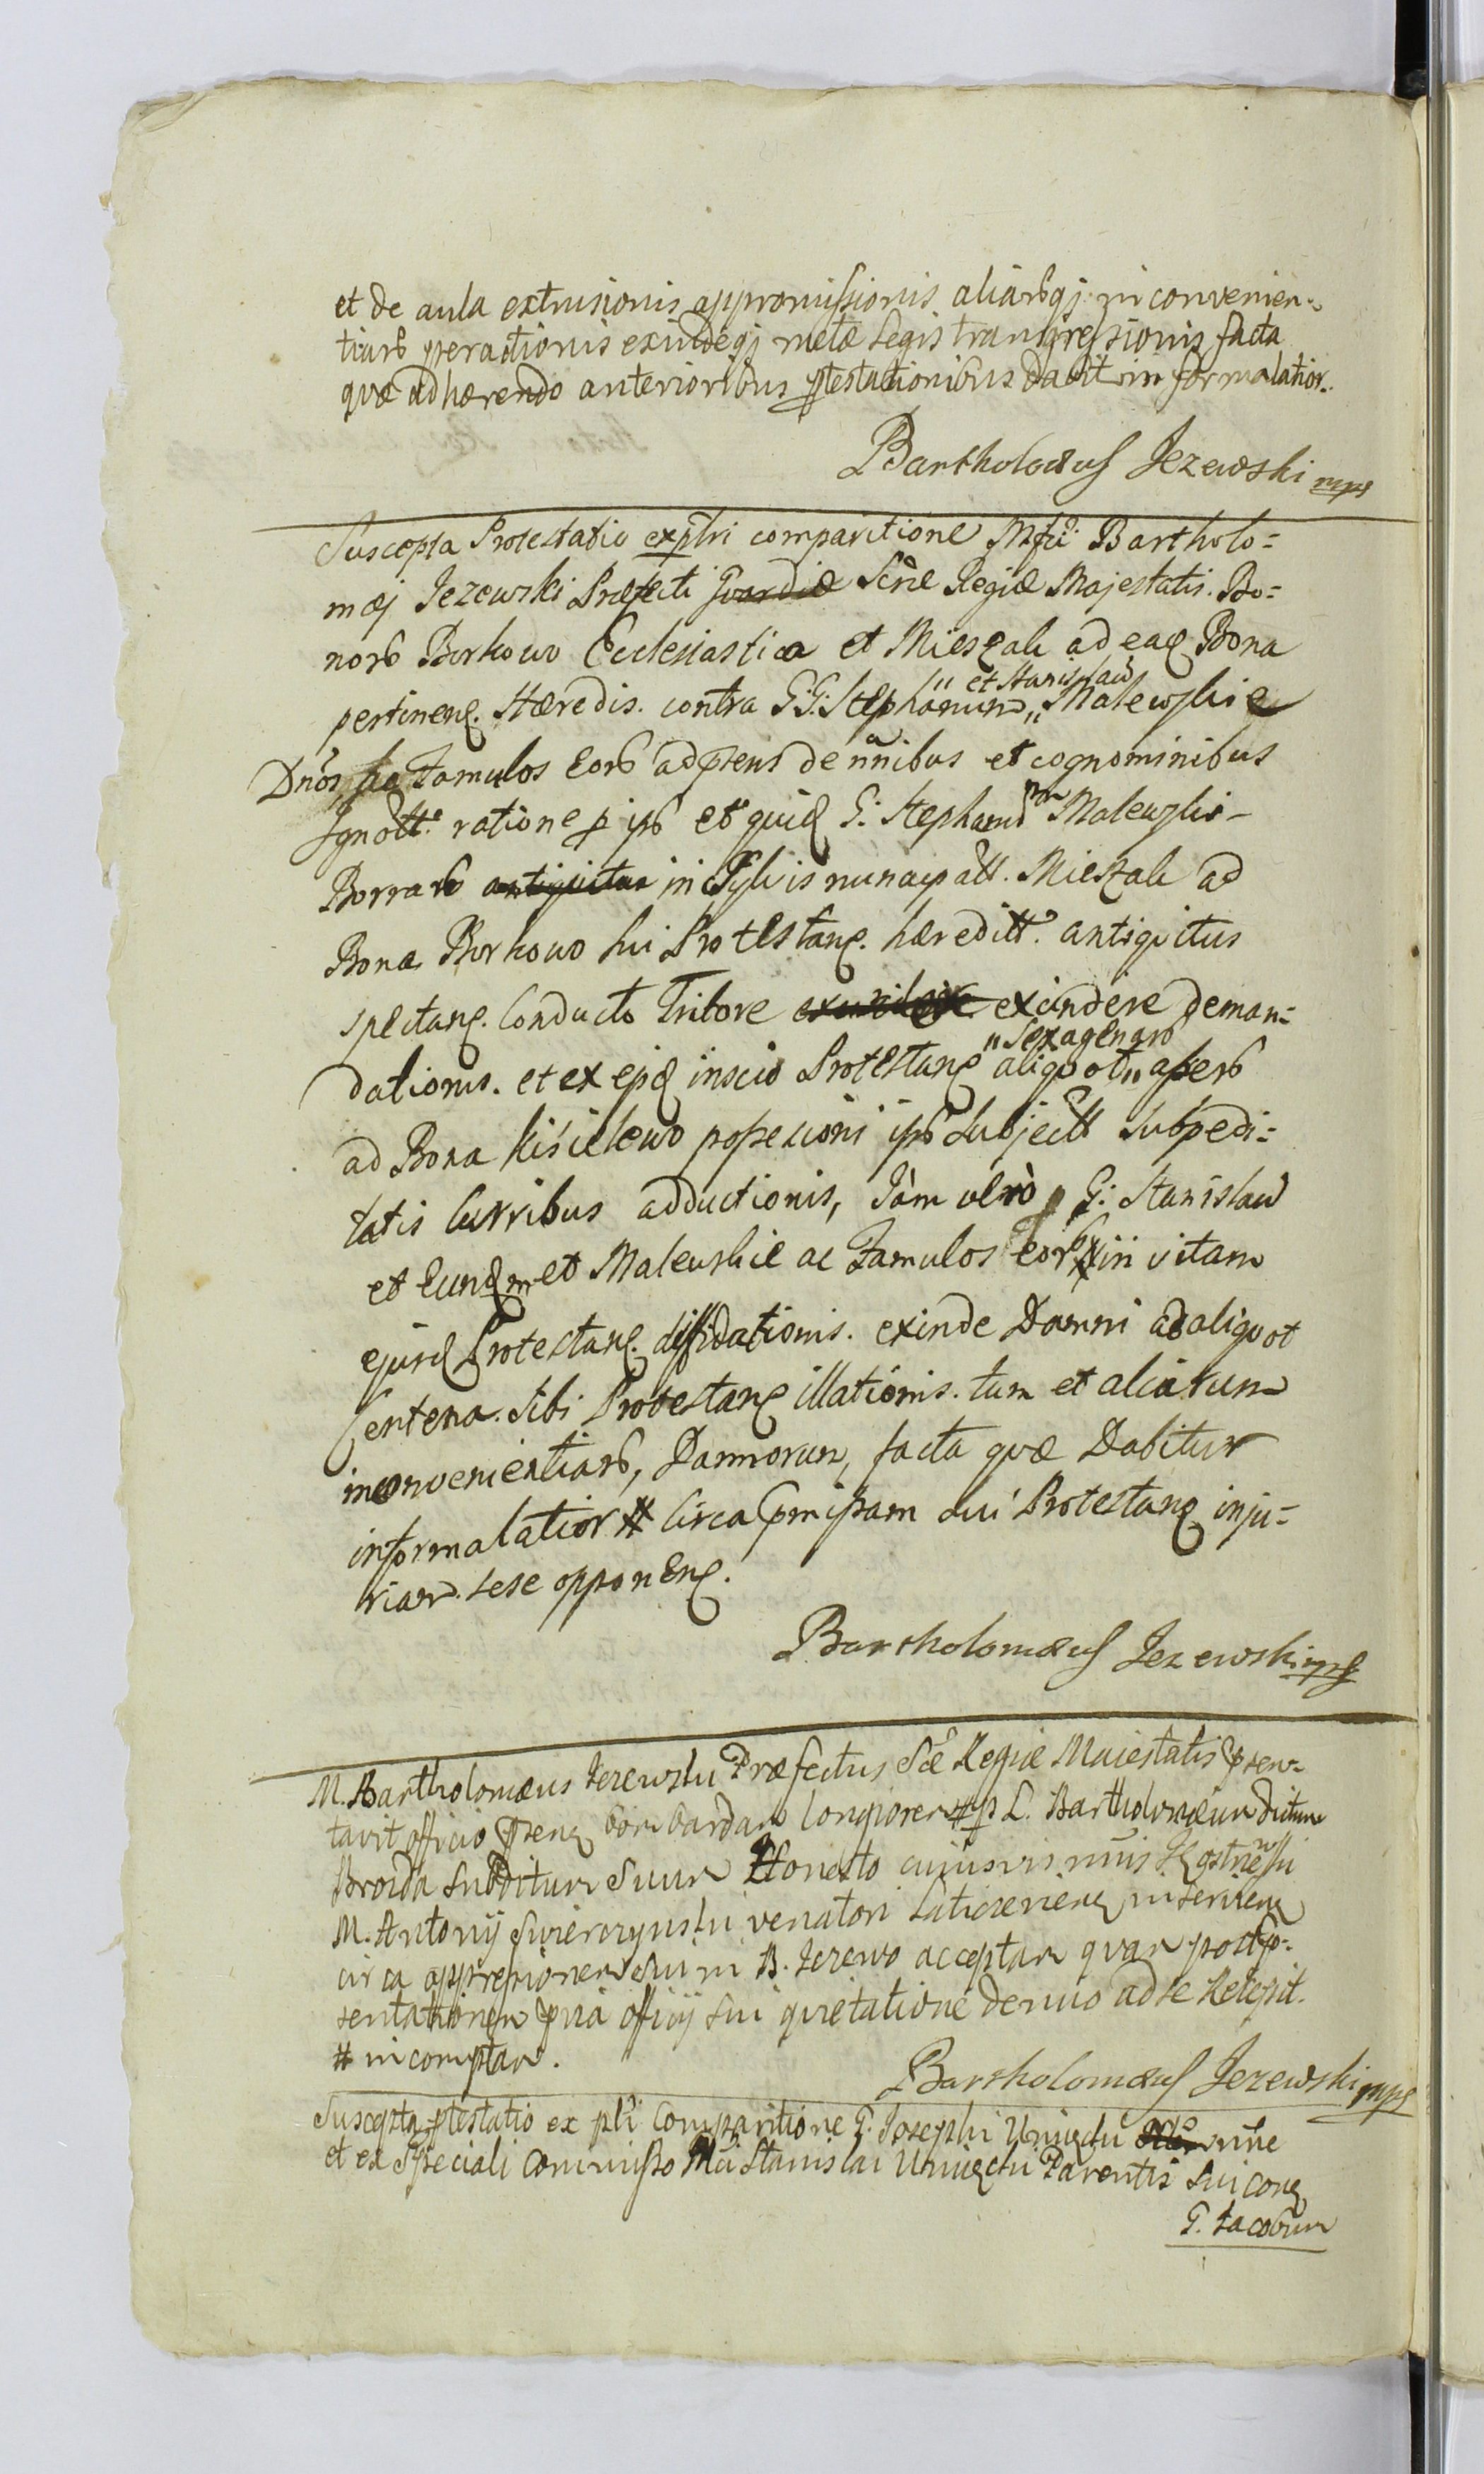 et de aula extrusionis appromissionis aliarūqȝ inconvenien-
tiarū peractionis exindeqȝ metæ Legis transgressionis facta
quæ adhærendo anterioribus ptestationibus dabit informalatior.
Bartholomæus Jezewski mps
Suscepta Protestatio ex plri comparitione Mfci Bartholo=
mæj Jezewski Præfecti Gvardiæ Scræ Regiæ Majestatis. Bo=
norū Borkowo Ecclesiastica et Mieszałi ad eaq Bona
pertineng. Hæredis. contra G:G: Stephanum „ et Stanislaū „ Malewskie
Dnos, ac Famulos eorū adpsens de nnibus et cognominibus
Ignott: ratione p ipū et quid G: Stephanum Malewski-
Borrarū antiquitus in Sylvis nuncupatt. Mieszałi ad
Bona Borkowo sui Protestang. hæreditt. antiquitus
spectang. Conducto Tritore exindere deman=
dationis. et ex ejsd inscio Protestang aliquot „ Sexagenarū „ asserū
ad Bona Kisielewo possesioni ipū subjectt subpedi=
tatis Curribus adductionis, Jàm verò p G: Stanislaū
et Eundmet Malewskie ac Famulos eorū in vitam
ejusd Protestang. diffidationis. exinde Damni ad aliquot
Centena. sibi Protestang illationis. tum et aliarum
inconvenientiarū, Damnorum, facta quæ Dabitur
informalatior # Circa pmissam sui Protestang inju=
riam. sese opponeng.
Bartholomæus Jezewski mps
M. Bartholomæus Jezewski Præfectus Scæ Regiæ Maiestatis psen-
tavit officio pseng bombardam longiorem # p L. Bartholomæum dictum
Broida subditum suum Honesto cuiusvis nnis Kostrzewski
M. Antonij Swierczynski venatori Laticzeviens inservieng
circa oppressionem sui in B. Jezewo acceptam quam post p-
sentationem pviâ officij sui quietatione denuo ad se Recepit.
# incomptam.
Bartholomæus Jezewski mps
Suscepta ptestatio ex plri Comparitione G. Josephi Uniecki nne
et ex Speciali Commisso Mci Stanislai Uniecki Parentis sui cong
G. Jacobum